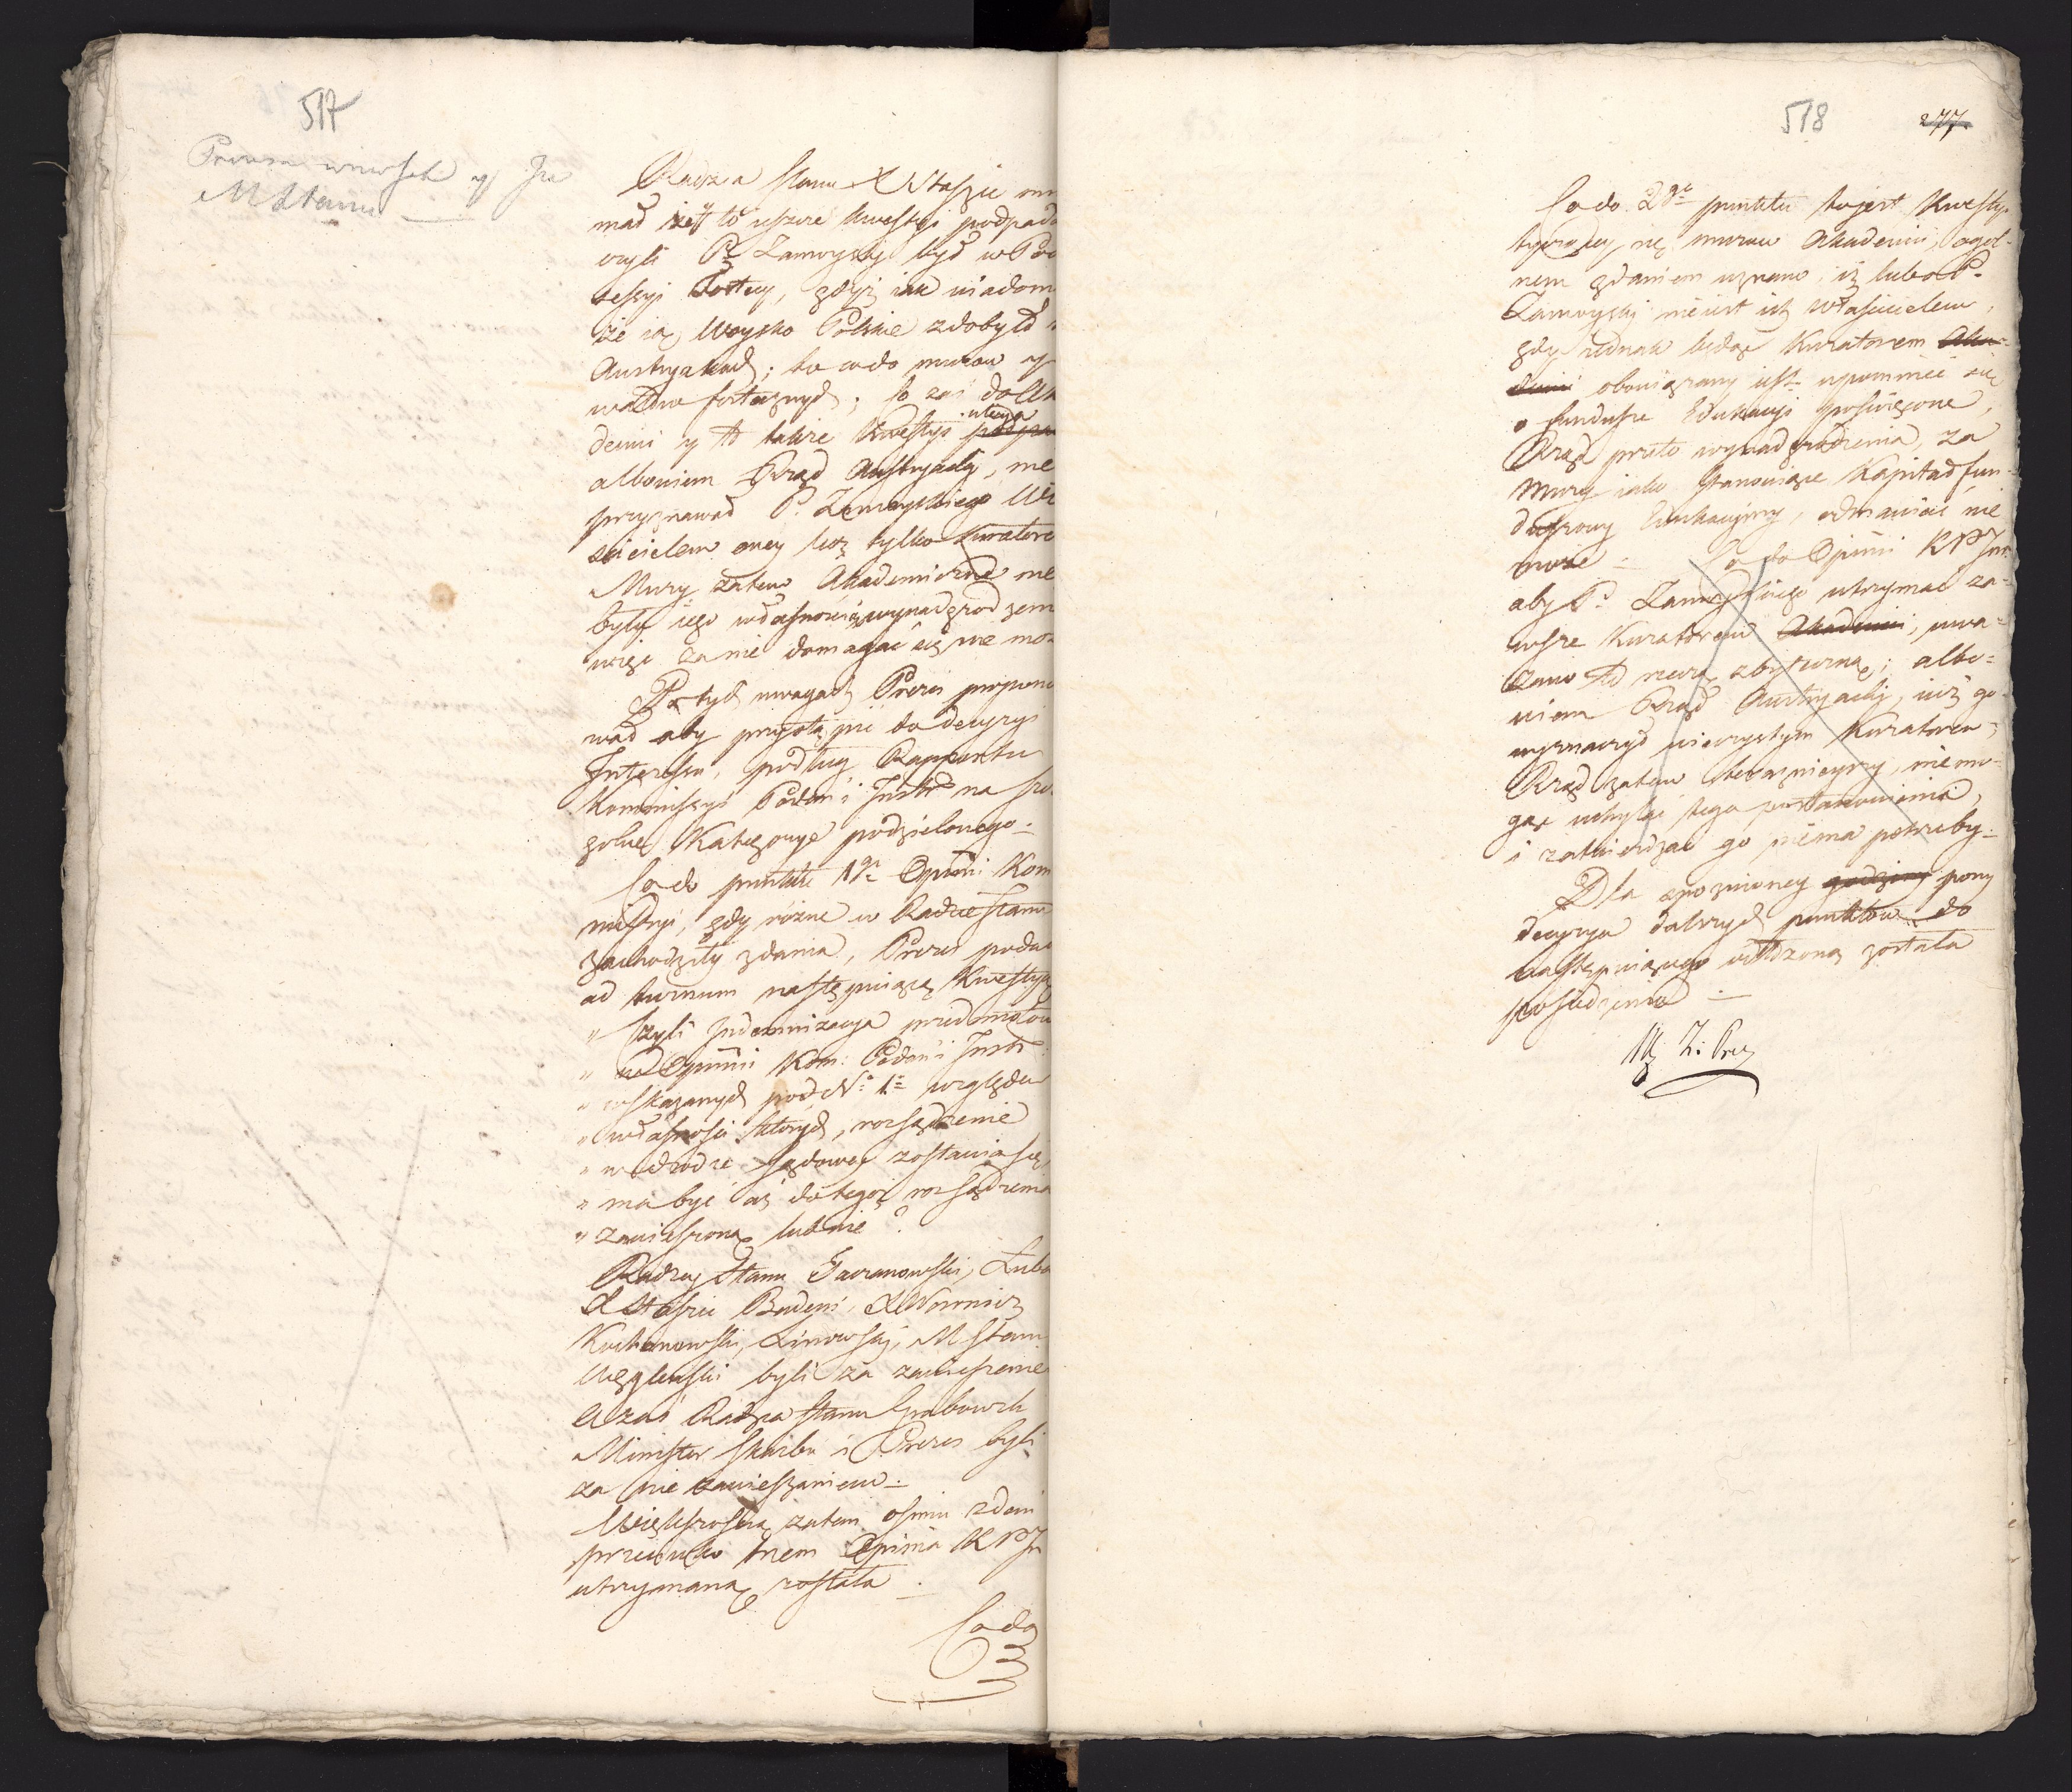 517
M Stanu
Radzca Stanu X Staszic mn
mał iż to ieszcze kwestyi podpada
czyli P. Zamoyski był w Po
sessyi Fortecy, gdyż iak wiadom
że ią Woysko Polskie zdobyło
Austryakach; to co do murow y
wałow fortecznych; Co zaś do Aka
demii y to także kwestyi ulega
albowiem Rząd Austryacki, nie
przyznawał P. Zamoyskiego Wł
ścicielem oney lecz tylko Kurator
Mury zatem Akademiczne nie
były iego własnością, wynadgrodzen
więc za nie domagać się nie mo
Po tych uwagach Prezes propono
wał aby przystąpić do decyzyi
Interessu, podług Rapportu
Kommissyi Podań i Instr. na szcze
golne Kategorye podzielonego.
Co do punktu 1go Opinii Kom
missyi, gdy różne w Radzie Stanu
zachodziły zdania, Prezes podał
ad turnum następuiącą kwestyą
" Czyli Indemnizacya przedmiotow
" w Opinii Kom: Podań i Instr:
" wskazanych pod No. 1o względem
" własności ktorych, rozsądzenie
" w drodze sądowey zostawia się,
" ma być aż do tegoż rozsądzenia
" zawieszoną lub nie?
Radzcy Stanu Gavronowski, Lube
X Staszic Badeni, X Woronicz
Kochanowski, Linowski, M Stanu
Węgleński byli za zawieszenie
A zaś Radzca Stanu Grabowski
Minister Skarbu i Prezes byli
za nie zawieszaniem.
Większością zatem ośmiu zdań
przeciwko trzem Opinia K P In
utrzymaną została.
Co do
518
277
Co do 2go punktu to jest Kwestyi
tyczącey się murow Akademii, ogol-
nem zdaniem uznano, iż lubo P.
Zamoyski nie iest ich Właścicielem,
gdy iednak będąc Kuratorem Aka-
demii obowiązany iest upomnieć się
o fundusze Edukacyi poświęcone,
Rząd przeto wynadgrodzenia, za
Mury iako stanowiące Kapitał fun-
duszowy Edukacyiny, odmawiać nie
może. Co do Opinii K P Ins.
aby P. Zamoyskiego utrzymać za-
wsze Kuratorem Akademii, uwa-
żano to rzeczą zbyteczną; albo-
wiem Rząd Austryacki, iuż go
wyznaczył wieczystym Kuratorem,
Rząd zatem teraznieyszy, nie mo-
gąc uchylić tego postanowienia,
i zatwierdzać go niema potrzeby.
Dla spoznioney godziny pory
decyzya dalszych punktow do
następuiącego odłożoną została
posiedzenia.